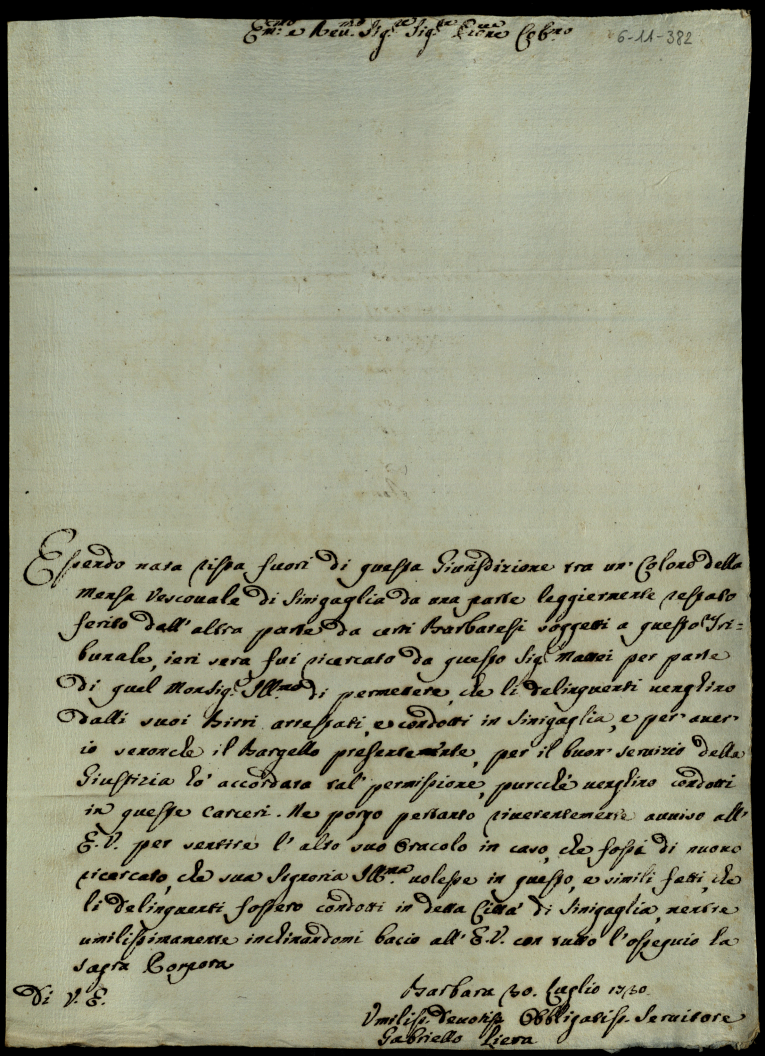 Em.mo e Reu.mo Sig.re Sig.re P.rone Col.mo
6-11-382
Essendo nata rissa fuori di questa Giurisdizione tra un Colono della
Mensa Vescouale di Sinigaglia da una parte leggiermente restato
ferito dall'altra parte da certi Barbaresi soggetti a questo Tri=
bunale, ieri sera fui ricercato da questo Sig.r Mattei per parte
di quel Monsig.r Ill.mo di permettere, che li delinquenti uenghino
dalli suoi Birri arrestati, e condotti in Sinigaglia, e per auer
io il Bargello presentemente, per il buon seruizio della
Giustizia hò accordata tal permissione, purche uenghino condotti
in queste Carceri. Ne porgo pertanto riuerentemente auuiso all'
E.V. per sentire l'alto suo Oracolo in caso, che fossi di nuouo
ricercato, che sua Signoria Ill.ma uolesse in questo, e simili fatti, che
li delinquenti fossero condotti in detta Città di Sinigaglia, mentre
umilissimamente inchinandomi bacio all'E.V. con tutto l'ossequio la
Sagra Porpora
Di V.E.
Barbara 30. Luglio
Vmiliss. Deuotiss. Obbligatiss. Seruitore
Gabriello